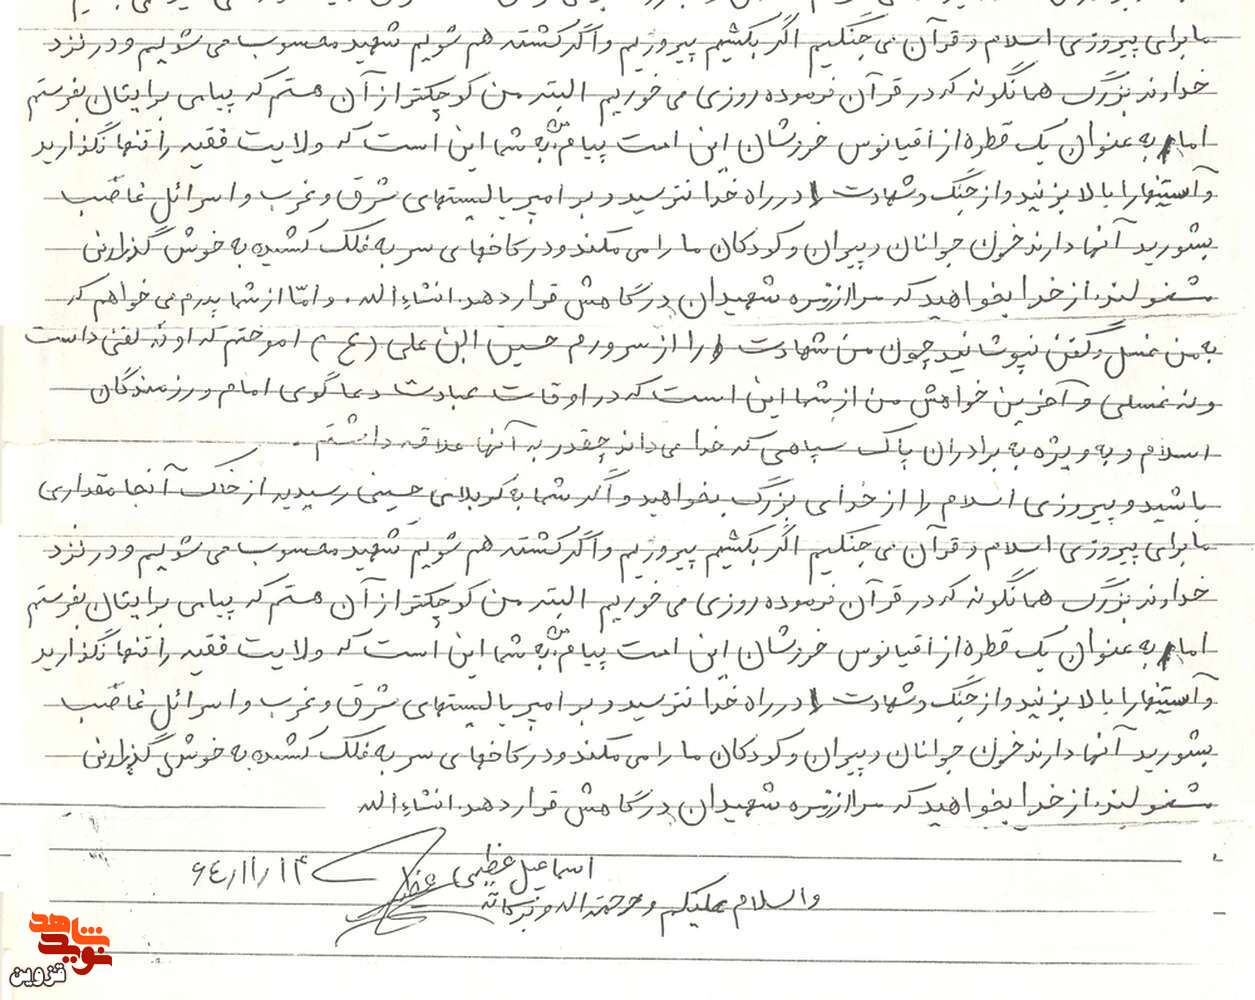 ما برای پیروزی اسلام و قرآن می جنگیم اگر بکشیم پیروزیم و اگر کشته هم شویم شهید محسوب می شویم و در نزد
خداوند بزرگ همانگونه که در قرآن فرموده روزی می خوریم البته من کوچکتر از آن هستم که پیامی برایتان بفرستم
اما به عنوان یک قطره از اقیانوس خروشان این امت پیام من به شما این است که ولایت فقیه را تنها نگذارید
و آستینها را بالا بزنید و از جنگ و شهادت در راه خدا نترسید و بر امپریالیستهای شرق و غرب و اسرائیل غاصب
بشورید آنها دارند خون جوانان و پیران و کودکان ما را می مکند و در کاخهای سر به فلک کشیده به خوش گذرانی
مشغولند. از خدا بخواهید که مرا از زمره شهیدان درگاهش قرار دهد. انشاءالله. و امّا از شما پدرم می خواهم که
به من غسل و کفن نپوشانید چون من شهادت را از سرورم حسین ابن علی (ع) اموختم که او نه کفنی داشت
و نه غسلی و آخرین خواهش من از شما این است که در اوقات عبادت دعاگوی امام و رزمندگان
اسلام و به ویژه به برادران پاک سپاهی که خدا می داند چقدر به آنها علاقه داشتم.
باشید و پیروزی اسلام را از خدای بزرگ بخواهید و اگر شما به کربلای حسینی رسیدید از خاک آنجا مقداری
ما برای پیروزی اسلام و قرآن می جنگیم اگر بکشیم پیروزیم و اگر کشته هم شویم شهید محسوب می شویم و در نزد
خداوند بزرگ همانگونه که در قرآن فرموده روزی می خوریم البته من کوچکتر از آن هستم که پیامی برایتان بفرستم
اما به عنوان یک قطره از اقیانوس خروشان این امت پیام من به شما این است که ولایت فقیه را تنها نگذارید
و آستینها را بالا بزنید و از جنگ و شهادت در راه خدا نترسید و بر امپریالیستهای شرق و غرب و اسرائیل غاصب
بشورید آنها دارند خون جوانان و پیران و کودکان ما را می مکند و در کاخهای سر به فلک کشیده به خوش گذرانی
مشغولند. از خدا بخواهید که مرا از زمره شهیدان درگاهش قرار دهد. انشاءالله
اسماعیل عظیمی ۶۴/۱۱/۱۴
والسلام علیکم و رحمته اله و برکاته
نوید شاهد
قزوین